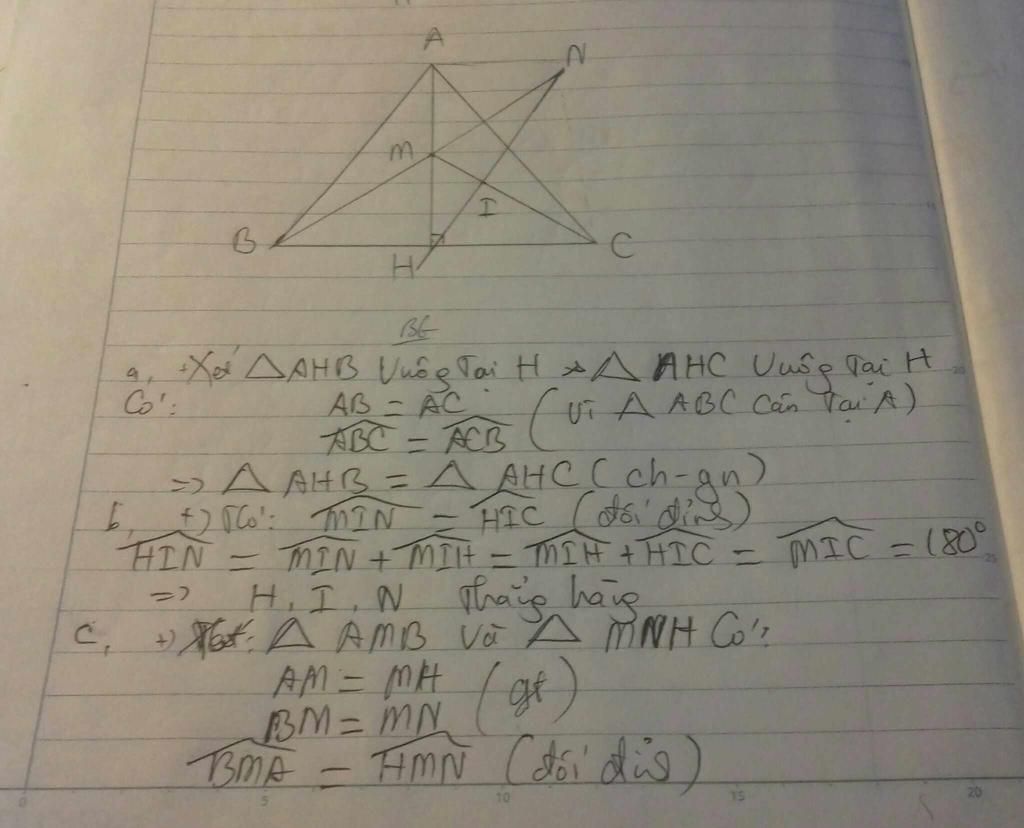 A
N
M
I
B
H
C
a, +Xét △AHB Vuông Tại H △ AHC Vuông Tại H
Có: AB = AC (Vì △ ABC Cân Tại A)
ABC = ACB
=> △ AHB = △ AHC (ch-gn)
b, +) TCó: MIN = HIC (đối đỉnh)
HIN = MIN + MIH = MIH + HIC = MIC = 180°
=> H, I, N Thẳng hàng
C, +) △ AMB Và △ MNH Có:
AM = MH (gt)
BM = MN
BMA = HMN (đối đỉnh)
0 5 10 15 20